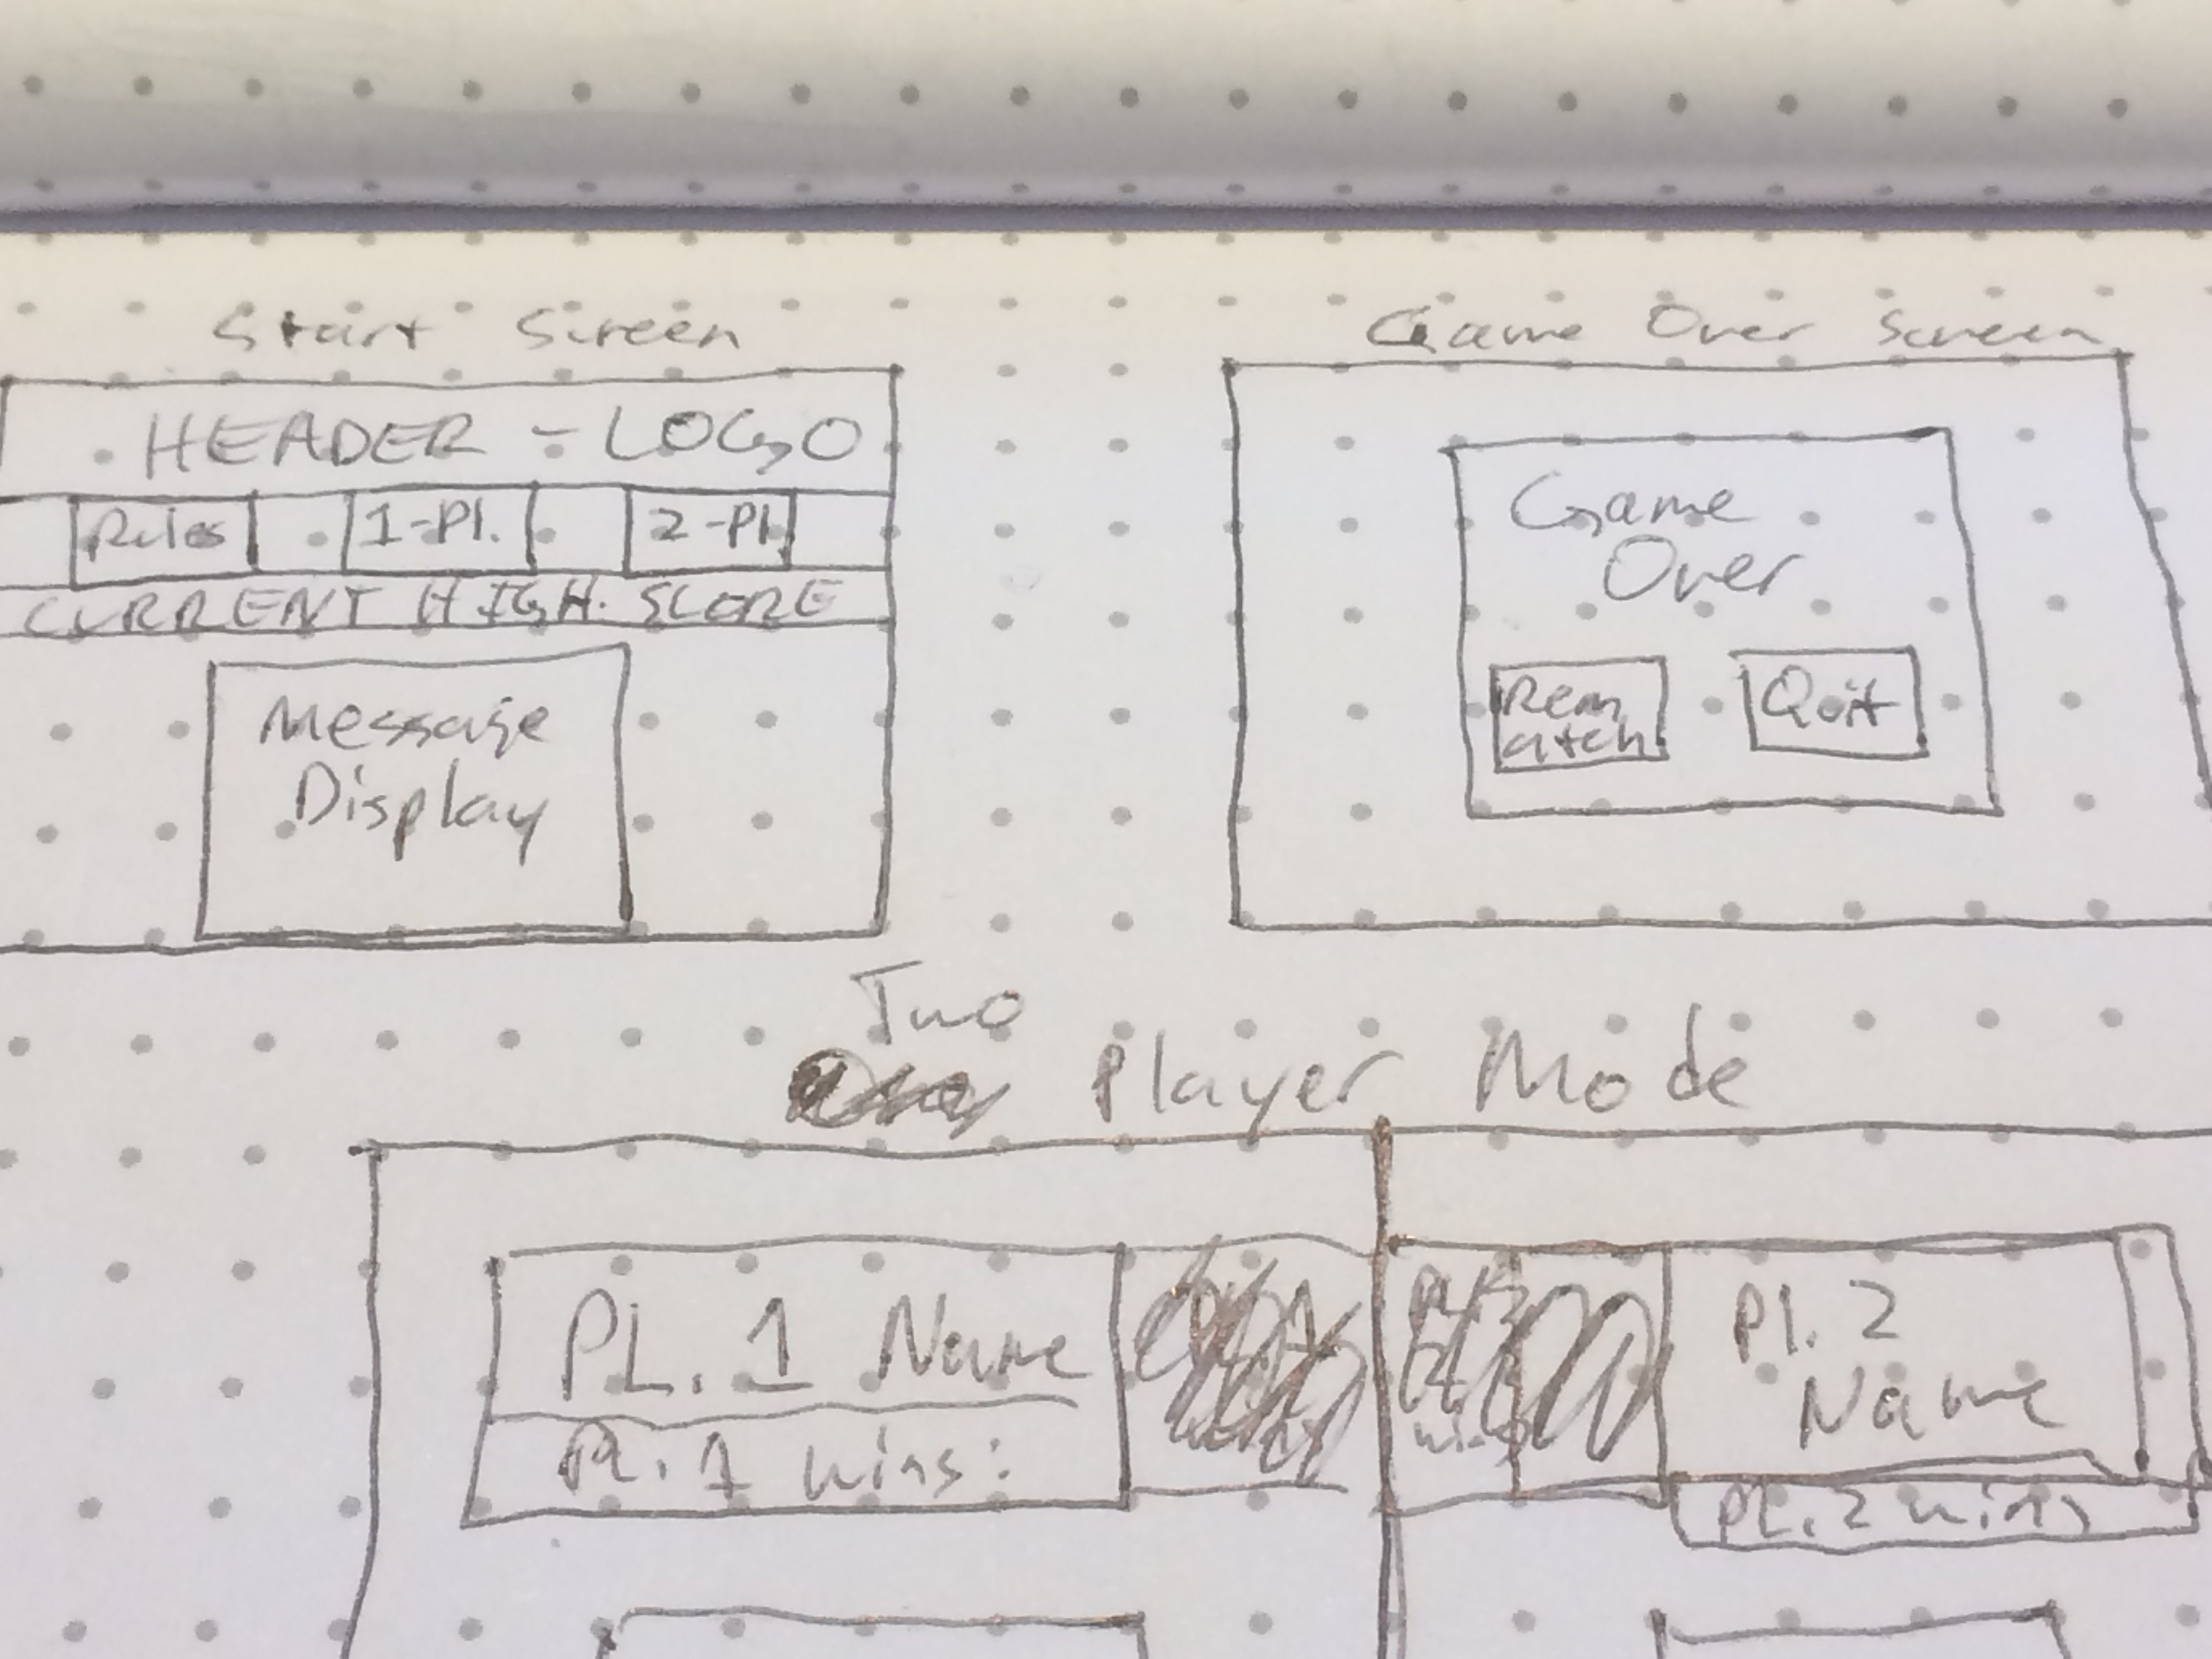 Start Screen
HEADER - LOGO
Rules 1-Pl. 2-Pl.
CURRENT HIGH. SCORE
Message
Display
Game Over Screen
Game
Over
Rem
atch
Quit
Two
Player Mode
PL. 1 Name
Pl. 1 wins:
Pl. 2
Name
PL. 2 wins